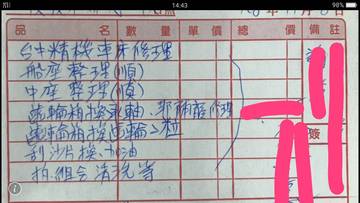 14:43
98%
品名 數量 單價 總價 備註
台中精機車床修理
船座整理(順)
中座整理(順)
齒輪箱換
齒輪箱換齒輪2粒
刮沙片換.加油
拆.組合清洗等
簽